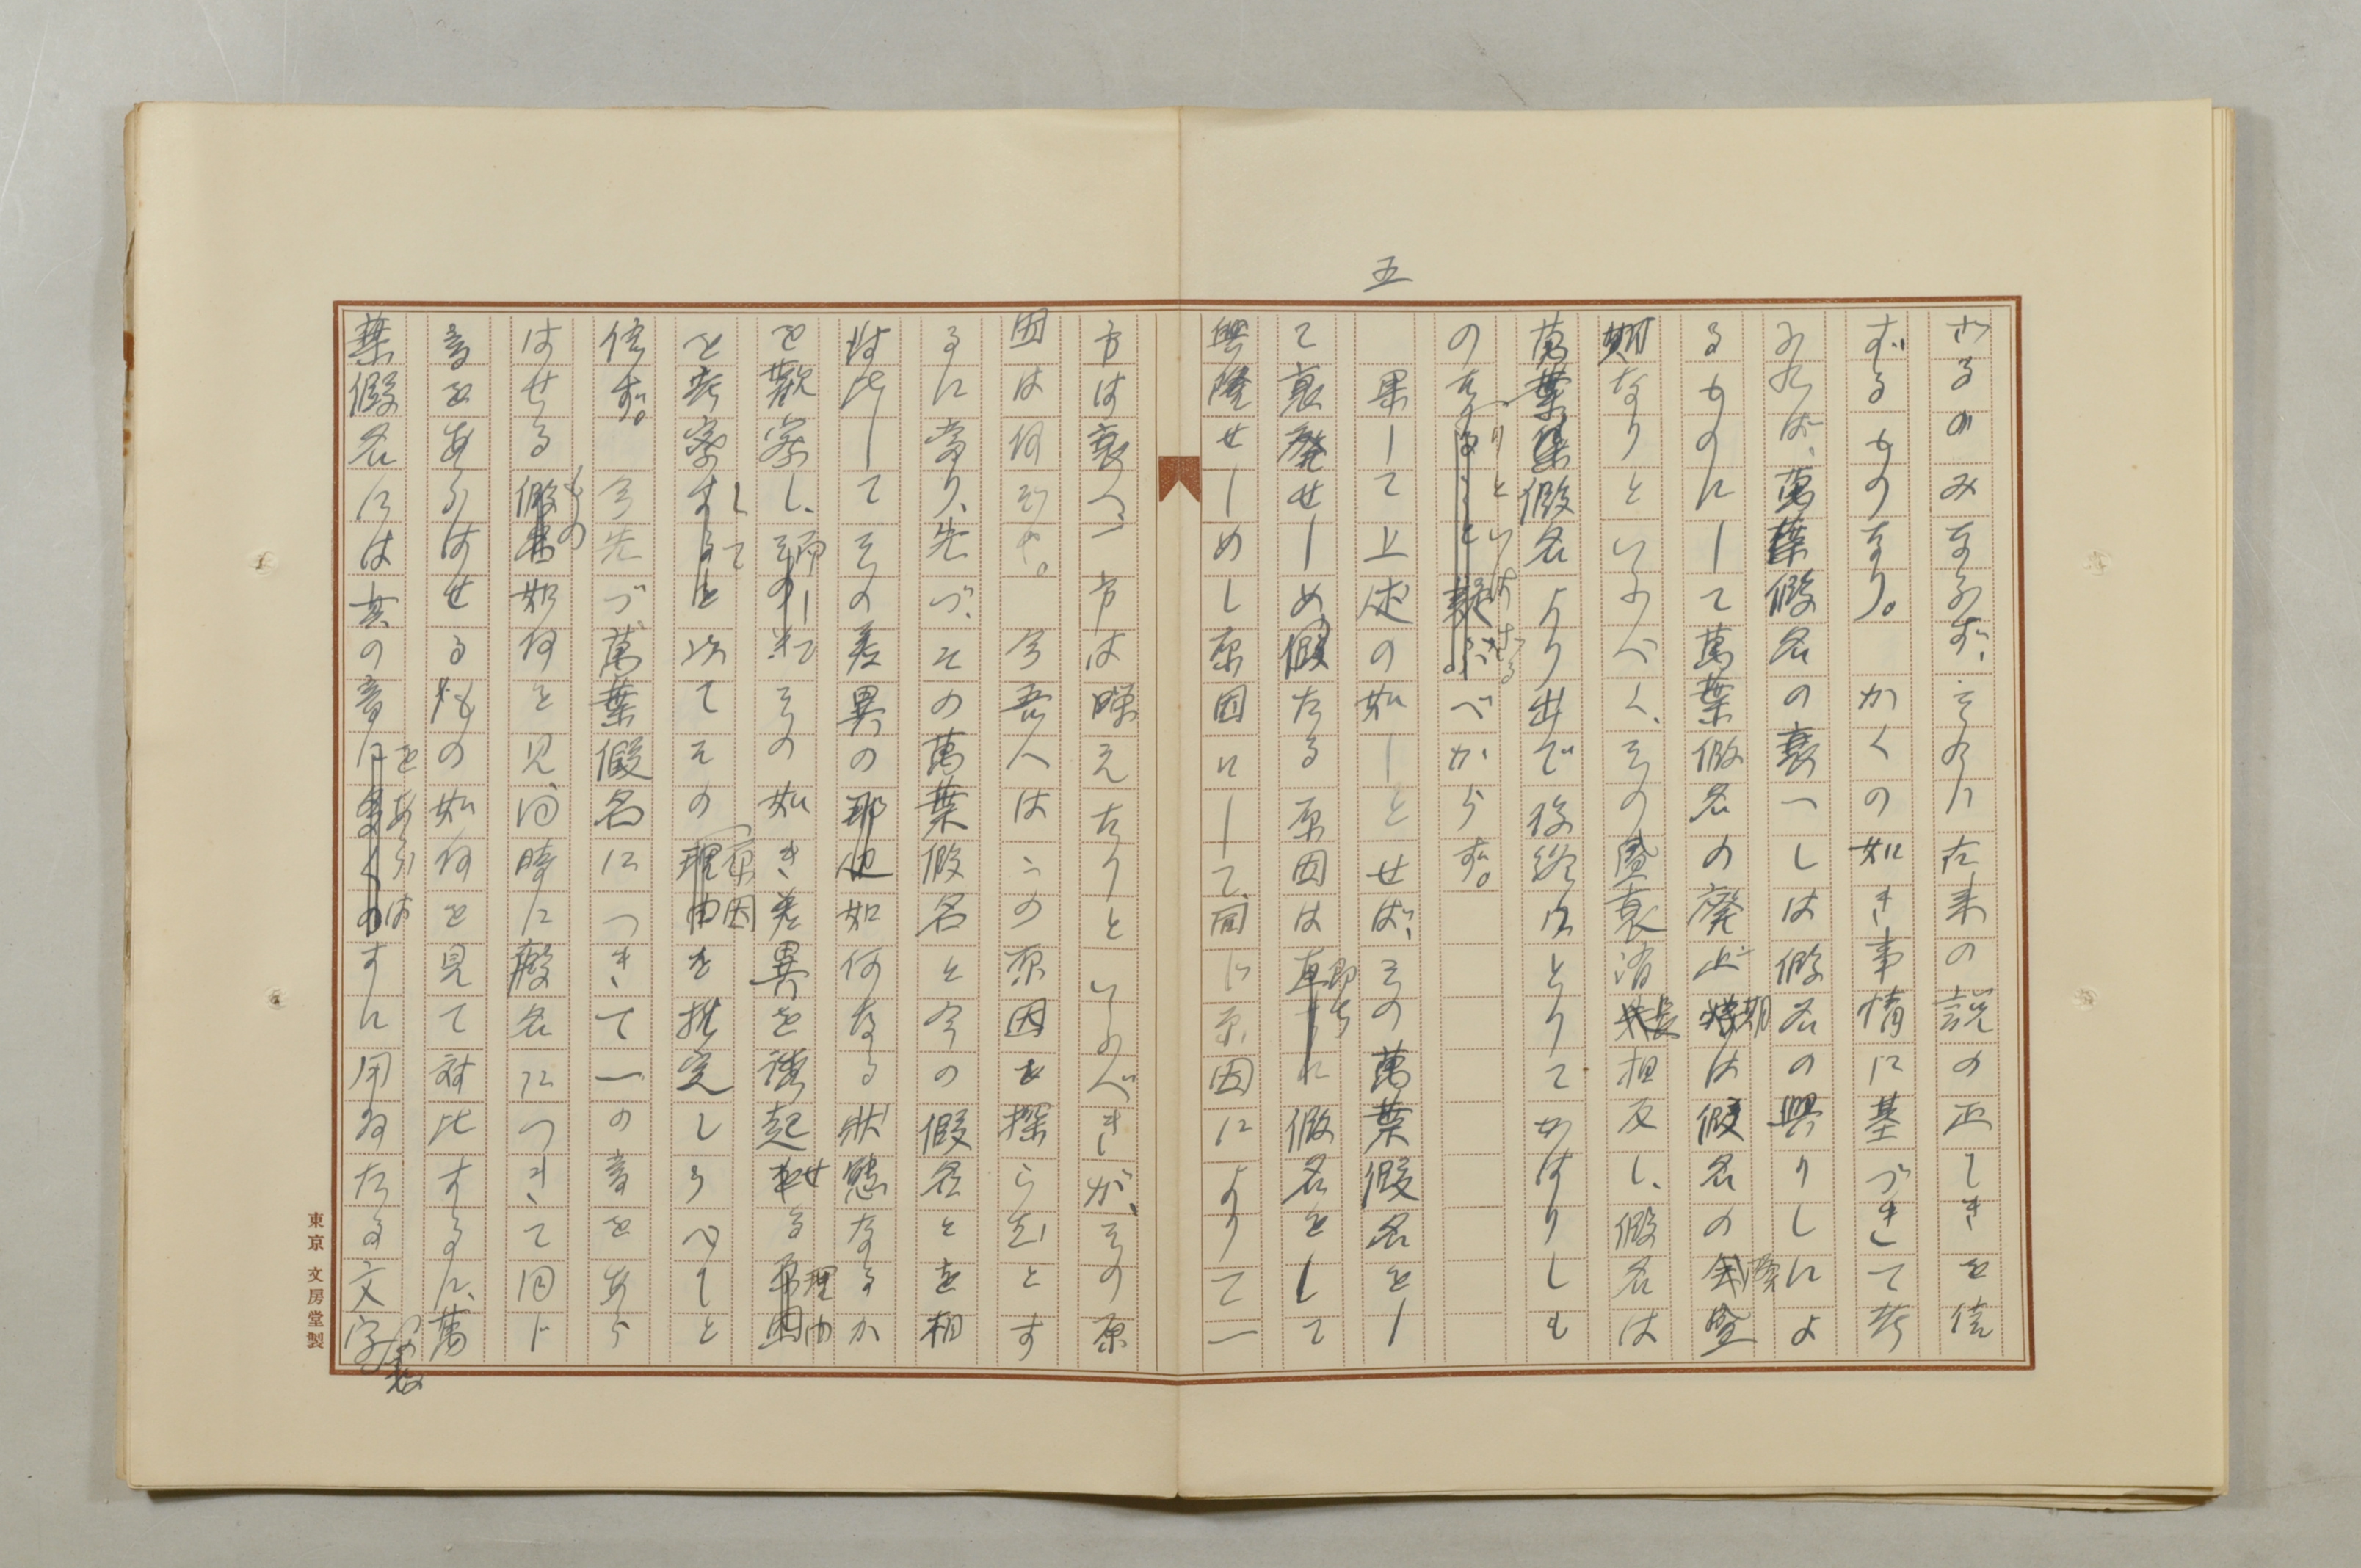 五
さるのみならず、それに在来の説の正しきを信
ずるものなり。かくの如き事情に基づきて考
ふれば、萬葉假名の衰へしは假名の興りしによ
るものにして萬葉假名の廃止期は假名の発
期なりといふべく、その盛衰消長相反し、假名は
萬葉假名より出で後終にとりてかはりしも
のなりといはざるべからず。
果して上述の如しとせば、その萬葉假名をし
て衰廃せしめ、假たる原因は即ち假名をして
興隆せしめし原因にして、同じ原因によりて一
方は衰へ一方は榮えたりといふべきが、その原
因は何ぞや。今吾人はこの原因を探らむとす
るに當り、先づ、その萬葉假名と今の假名とを相
対比してその差異の如何なる狀態なるか
を觀察し、而してその如き差異を惹起せる理由
を考察して以てその原因を推定しうべしと
信ず。今先づ、萬葉假名につきて一の音をあら
はせるもの如何を見、同時に假名につきて同じ
音をあらはせるものの如何を見て対比するに、萬
葉假名には其の音をあらはすに用ゐたる文字
東京 文房堂製